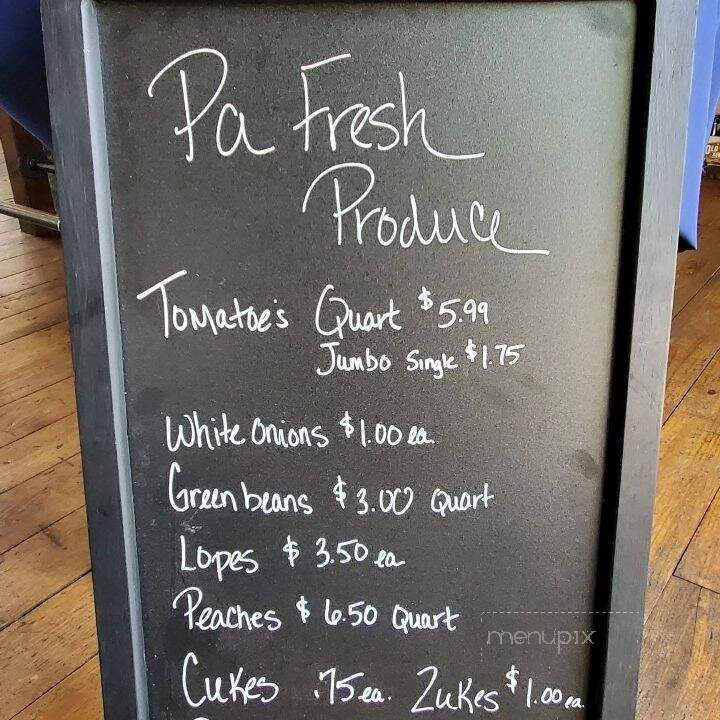 Pa Fresh
Produce
Tomatoe's Quart $5.99
Jumbo Single $1.75
White Onions $1.00 ea.
Green beans $3.00 Quart
Lopes $3.50 ea
Peaches $6.50 Quart
menupix
Cukes .75 ea. Zukes $1.00 ea.